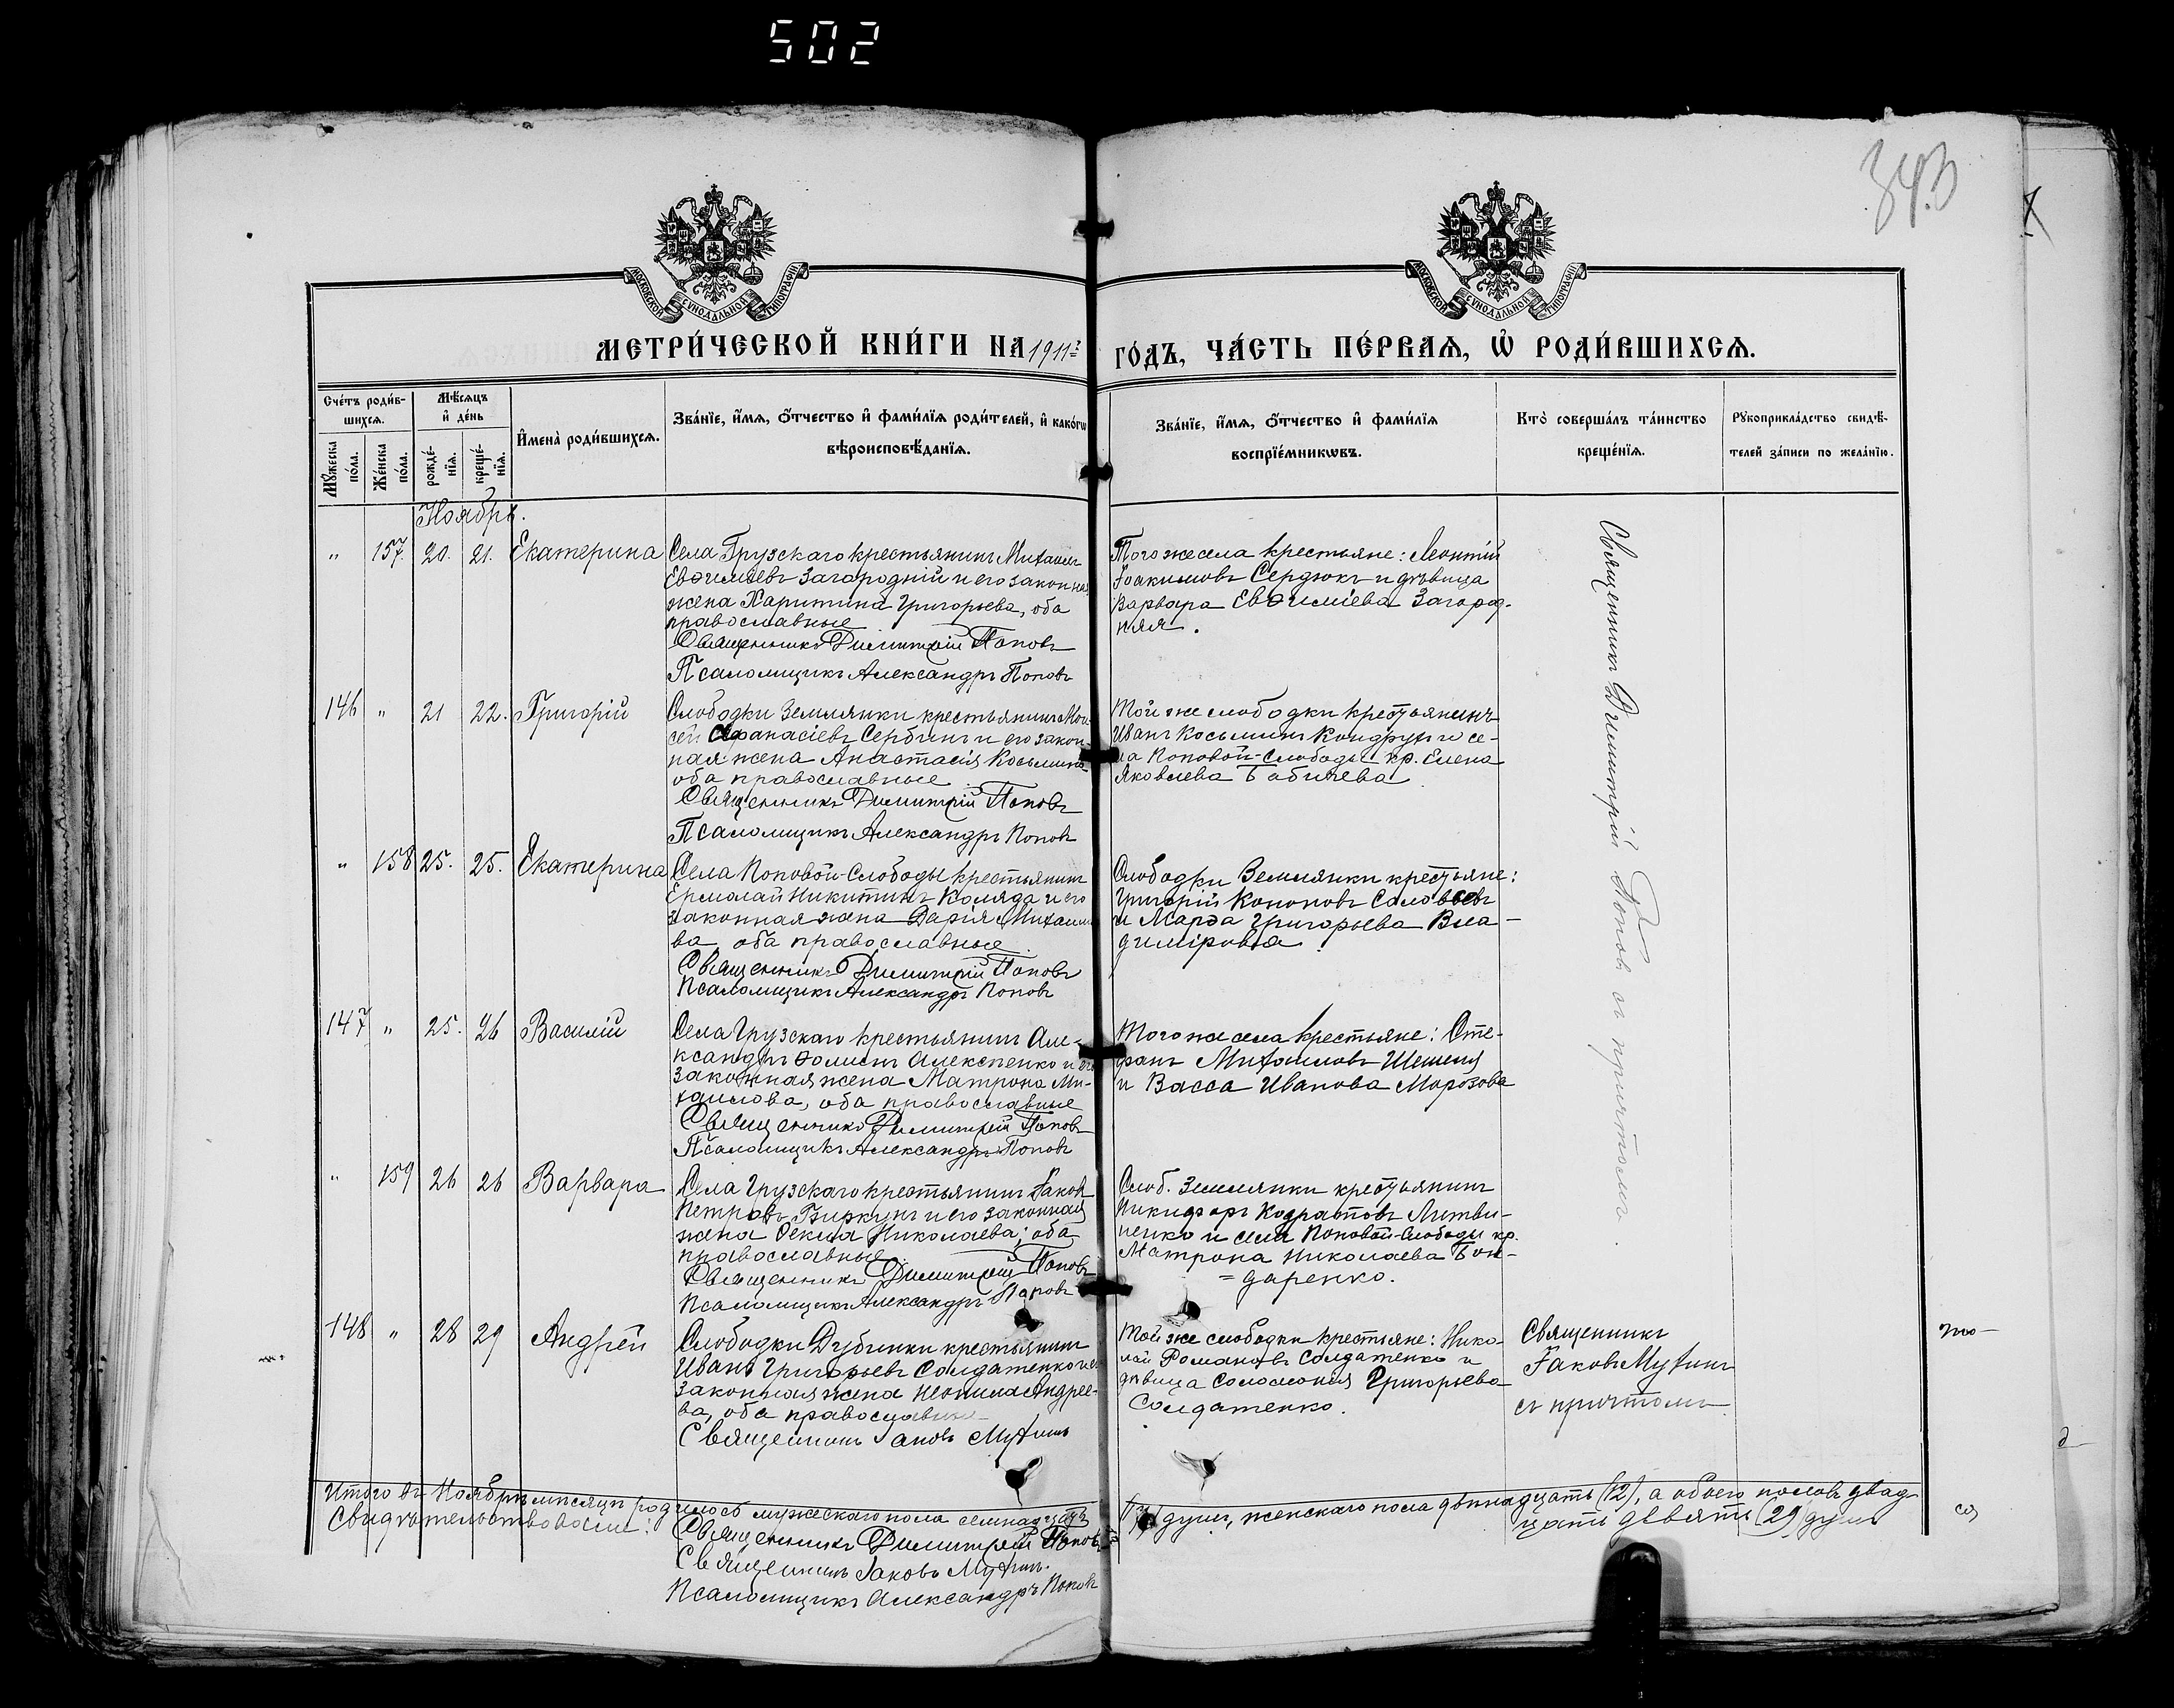 502
343
МОСКОВСКОЙ СѴНОДАЛЬНОЙ ТИПОГРАФІИ
МОСКОВСКОЙ СѴНОДАЛЬНОЙ ТИПОГРАФІИ
МЕТРИ́ЧЕСКОЙ КНИ́ГИ НА 1911 г. ГО́ДЪ, ЧА́СТЬ ПЕ́РВАЯ, Ѡ҆ РОДИ́ВШИХСЯ.
Сче́тъ роди́в-
шихся.
Мꙋ́жеска по́ла.
Же́нска по́ла.
Мѣ́сяцъ и҆ де́нь
рожде́-
нїя.
креще́-
нїя.
И҆мена̀ роди́вшихся.
Зва́нїе, и҆́мя, ѻ҆́тчество и҆ фами́лїя роди́телей, и҆ како́гѡ
вѣроисповѣ́данїя.
Зва́нїе, и҆́мя, ѻ҆́тчество и҆ фами́лїя
воспрїе́мникѡвъ.
Кто̀ соверша́лъ та́инство
креще́нїя.
Рꙋкоприкла́дство свидѣ́-
телей за́писи по жела́нїю.
Ноябрь.
" 157. 20. 21. Екатерина
Села Грузскаго крестьянинъ Михаилъ
Евѳиміевъ Загородній и его законная
жена Харитина Григорьева, оба
православные
Священникъ Димитрій Поповъ
Псаломщикъ Александръ Поповъ
Того же села крестьяне: Леонтій
Іоакимовъ Сердюкъ и дѣвица
Варвара Евѳиміева Загород-
няя.
Священникъ Димитрій Поповъ съ причтомъ.
146 " 21 22. Григорій
Слободки Землянки крестьянинъ Мои-
сей Аѳанасіевъ Сербинъ и его закон-
ная жена Анастасія Косьмина
оба православные
Священникъ Димитрій Поповъ
Псаломщикъ Александръ Поповъ
Той же слободки крестьянинъ
Иванъ Косьминъ Кондрун и се-
ла Поповой-Слободы кр. Елена
Яковлева Бабичева
" 158 25. 25. Екатерина
Села Поповой-Слободы крестьянинъ
Ермолай Никитинъ Коляда и его
законная жена Дарія Михаило
ва, оба православные.
Священникъ Димитрій Поповъ
Псаломщикъ Александръ Поповъ
Слободки Землянки крестьяне:
Григорій Кононовъ Соловьевъ
и Марѳа Григорьева Вла-
димірова.
147 " 25. 26 Василій
Села Грузскаго крестьянинъ Але-
ксандръ Ѳоминъ Алексѣенко и его
законная жена Матрона Ми-
хаилова, оба православные
Священникъ Димитрій Поповъ
Псаломщикъ Александръ Поповъ
Того же села крестьяне: Сте-
фанъ Михаиловъ Шешеня
и Васса Иванова Морозова
" 159 26 26 Варвара
Села Грузскаго крестьянинъ Іаковъ
Петровъ Биркунъ и его законная
жена Ѳекла Николаева; оба
православные.
Священникъ Димитрій Поповъ
Псаломщикъ Александръ Поповъ
Слоб. Землянки крестьянинъ
Никифоръ Кодратовъ Литви-
ненко и села Поповой-Слободы кр.
Матрона Николаева Бон-
=даренко.
148 " 28 29 Андрей
Слободки Дубинки крестьянинъ
Иванъ Григорьевъ Солдатенко и его
законная жена Неонила Андрее-
ва, оба православные
Священникъ Іаковъ Мухинъ
Той же слободки крестьяне: Нико-
лай Романовъ Солдатенко и
дѣвица Соломонія Григорьева
Солдатенко.
Священникъ
Іаковъ Мухинъ
съ причтомъ
Итого въ Ноябрѣ мѣсяцѣ родилось мужескаго пола семнадцать
(17) душъ, женскаго пола двѣнадцать (12), а обоего половъ двад-
цать девять (29) душъ
Свидѣтельствовали:
Священникъ Димитрій Поповъ
Священникъ Іаковъ Мухинъ.
Псаломщикъ Александръ Поповъ